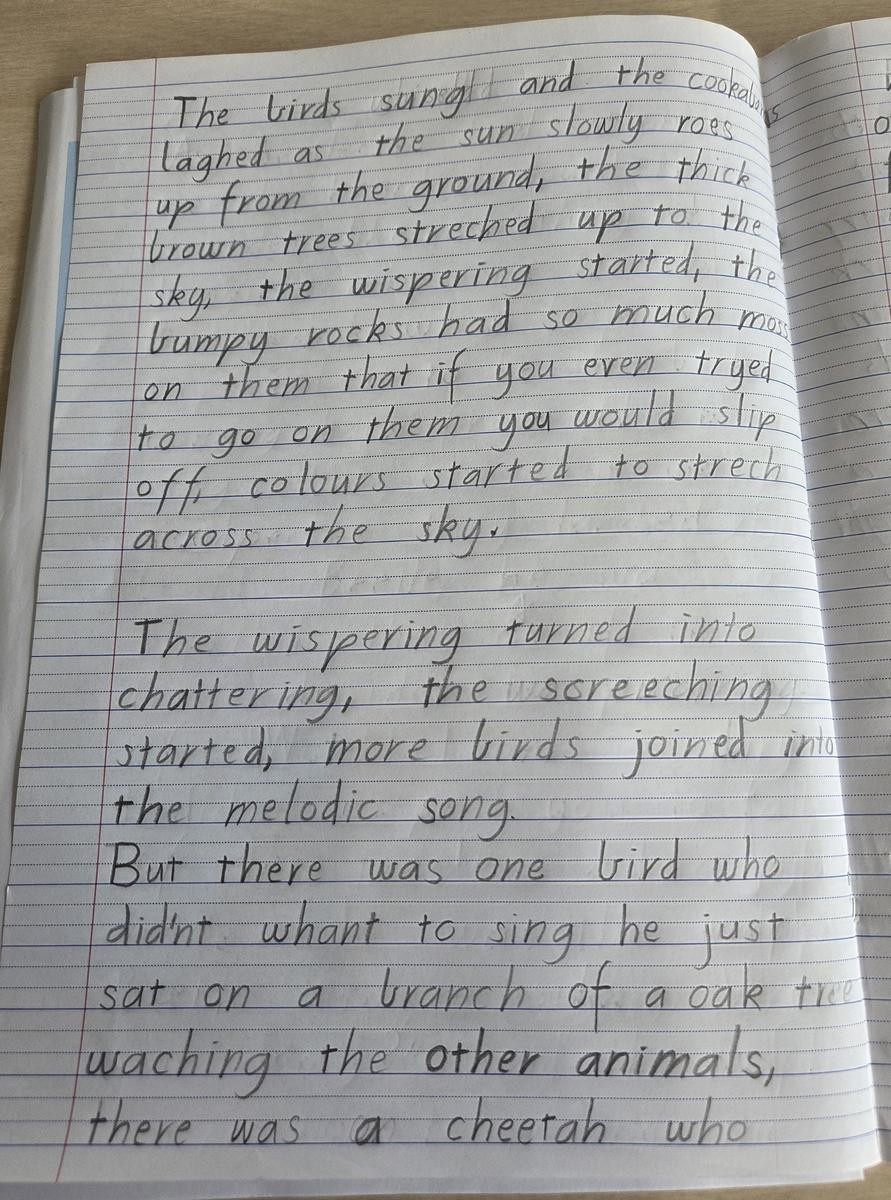 The birds sung and the cookabaras
laghed as the sun slowly roes
up from the ground, the thick
brown trees streched up to the
sky, the wispering started, the
bumpy rocks had so much moss
on them that if you even tryed
to go on them you would slip
off, colours started to strech
across the sky.
The wispering turned into
chattering, the screeching
started, more birds joined into
the melodic song.
But there was one bird who
did'nt whant to sing he just
sat on a branch of a oak tree
waching the other animals,
there was a cheetah who